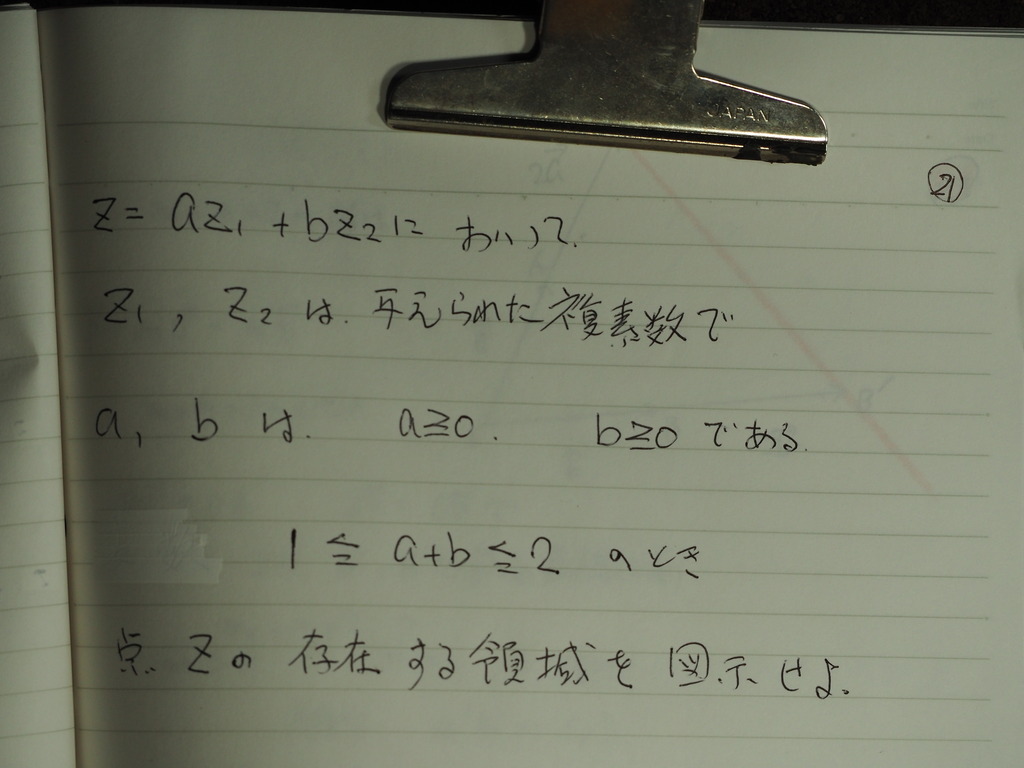 JAPAN
㉑
z = az₁ + bz₂ に おいて、
z₁, z₂ は、与えられた複素数で
a, b は、 a≧0、 b≧0 である。
1 ≦ a+b ≦ 2 のとき
点 z の 存在する領域を 図示せよ。